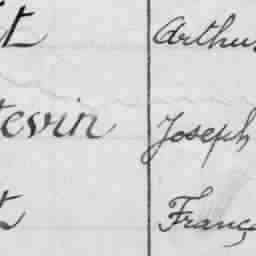 t Arthu
tevin Joseph
t Franç